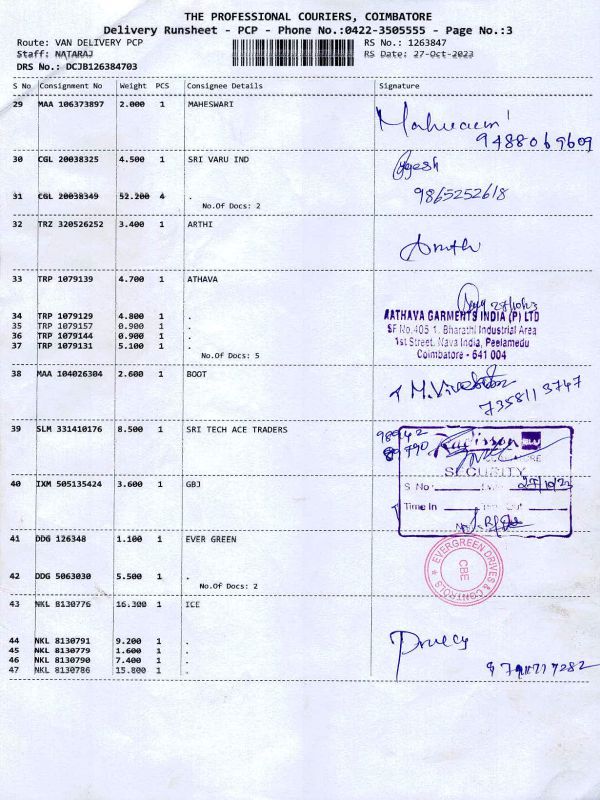 THE PROFESSIONAL COURIERS, COIMBATORE
Delivery Runsheet - PCP - Phone No.:0422-3505555 - Page No.:3
Route: VAN DELIVERY PCP RS No.: 1263847
Staff: NATARAJ RS Date: 27-Oct-2023
DRS No.: DCJB126384703
S No Consignment No Weight PCS Consignee Details Signature
29 MAA 106373897 2.000 1 MAHESWARI
9488069609
30 CGL 20038325 4.500 1 SRI VARU IND
31 CGL 20038349 52.200 4 .
9865252618
No.Of Docs: 2
32 TRZ 320526252 3.400 1 ARTHI
33 TRP 1079139 4.700 1 ATHAVA
27/10/23
34 TRP 1079129 4.800 1 .
35 TRP 1079157 0.900 1 .
36 TRP 1079144 0.900 1 .
37 TRP 1079131 5.100 1 .
No.Of Docs: 5
AATHAVA GARMENTS INDIA (P) LTD
SF No.405 1. Bharathi Industrial Area
1st Street, Nava India, Peelamedu
Coimbatore - 641 004
38 MAA 104026304 2.600 1 BOOT
7358113747
39 SLM 331410176 8.500 1 SRI TECH ACE TRADERS
Radisson BLU
SECURITY
40 IXM 505135424 3.600 1 GBJ
S No
27/10/23
Time In
Out
41 DDG 126348 1.100 1 EVER GREEN
42 DDG 5063030 5.500 1 .
No.Of Docs: 2
EVERGREEN DRIVES & CONTROLS
CBE
43 NKL 8130776 16.300 1 ICE
44 NKL 8130791 9.200 1 .
45 NKL 8130779 1.600 1 .
46 NKL 8130790 7.400 1 .
47 NKL 8130786 15.800 1 .